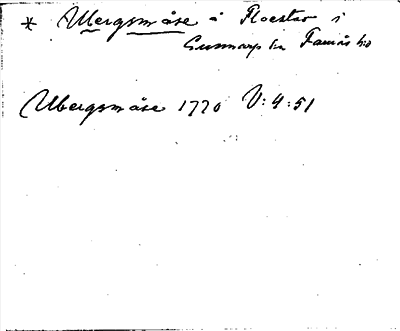 * Ubergsmåse å Floestad i
Gunnarp sn Faurås hd
Ubergsmåse 1770 V:4:51